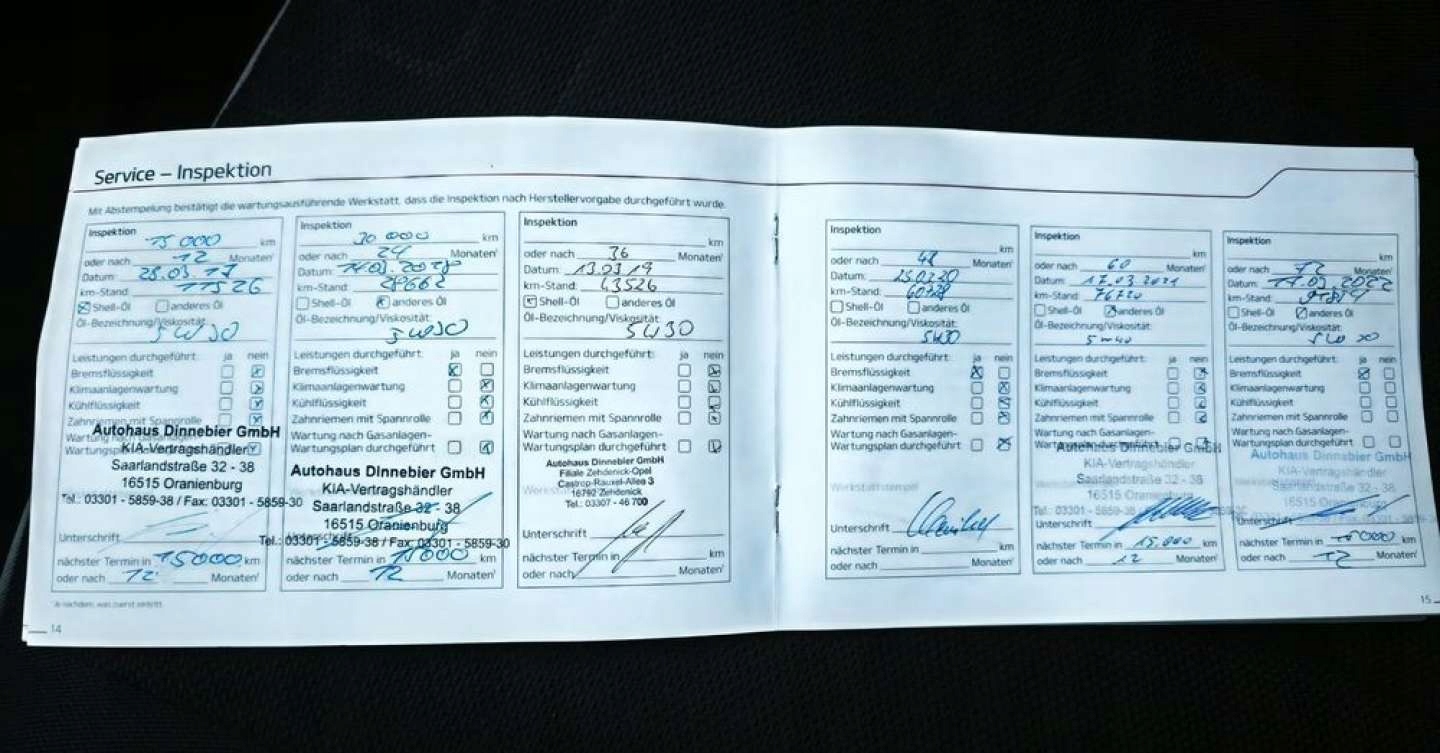 Service – Inspektion
Mit Abstempelung bestätigt die wartungsausführende Werkstatt, dass die Inspektion nach Herstellervorgabe durchgeführt wurde.
Inspektion
15 000 km
oder nach 12 Monaten¹
Datum: 28.03.17
km-Stand: 11526
Shell-Öl anderes Öl
Öl-Bezeichnung/Viskosität:
5W30
Leistungen durchgeführt: ja nein
Bremsflüssigkeit
Klimaanlagenwartung
Kühlflüssigkeit
Zahnriemen mit Spannrolle
Wartung nach Gasanlagen-
Wartungsplan
Autohaus Dinnebier GmbH
KIA-Vertragshändler
Saarlandstraße 32 - 38
16515 Oranienburg
Tel.: 03301 - 5859-38 / Fax: 03301 - 5859-30
Unterschrift
nächster Termin in 15000 km
oder nach 12 Monaten¹
Inspektion
30 000 km
oder nach 24 Monaten¹
Datum: 14.03.2018
km-Stand: 28662
Shell-Öl anderes Öl
Öl-Bezeichnung/Viskosität:
5W30
Leistungen durchgeführt: ja nein
Bremsflüssigkeit
Klimaanlagenwartung
Kühlflüssigkeit
Zahnriemen mit Spannrolle
Wartung nach Gasanlagen-
Wartungsplan durchgeführt
Autohaus Dinnebier GmbH
KIA-Vertragshändler
Saarlandstraße 32 - 38
16515 Oranienburg
Tel.: 03301 - 5859-38 / Fax: 03301 - 5859-30
nächster Termin in 15000 km
oder nach 12 Monaten¹
Inspektion
km
oder nach 36 Monaten¹
Datum: 13.03.19
km-Stand: 43526
Shell-Öl anderes Öl
Öl-Bezeichnung/Viskosität:
5W30
Leistungen durchgeführt: ja nein
Bremsflüssigkeit
Klimaanlagenwartung
Kühlflüssigkeit
Zahnriemen mit Spannrolle
Wartung nach Gasanlagen-
Wartungsplan durchgeführt
Autohaus Dinnebier GmbH
Filiale Zehdenick-Opel
Castrop-Rauxel-Allee 3
16792 Zehdenick
Tel.: 03307 - 46 700
Unterschrift
nächster Termin in km
oder nach Monaten¹
¹ Je nachdem, was zuerst eintritt.
14
Inspektion
km
oder nach 48 Monaten¹
Datum:
km-Stand: 60728
Shell-Öl anderes Öl
Öl-Bezeichnung/Viskosität:
5W30
Leistungen durchgeführt: ja nein
Bremsflüssigkeit
Klimaanlagenwartung
Kühlflüssigkeit
Zahnriemen mit Spannrolle
Wartung nach Gasanlagen-
Wartungsplan durchgeführt
Werkstattstempel
Unterschrift
nächster Termin in km
oder nach Monaten¹
Inspektion
km
oder nach 60 Monaten¹
Datum: 17.03.2021
km-Stand: 76720
Shell-Öl anderes Öl
Öl-Bezeichnung/Viskosität:
5W40
Leistungen durchgeführt: ja nein
Bremsflüssigkeit
Klimaanlagenwartung
Kühlflüssigkeit
Zahnriemen mit Spannrolle
Wartung nach Gasanlagen-
Wartungsplan durchgeführt
Autohaus Dinnebier GmbH
KIA-Vertragshändler
Saarlandstraße 32 - 38
16515 Oranienburg
Unterschrift
nächster Termin in 15.000 km
oder nach 12 Monaten¹
Inspektion
km
oder nach 72 Monaten¹
Datum: 2022
km-Stand:
Shell-Öl anderes Öl
Öl-Bezeichnung/Viskosität:
Leistungen durchgeführt: ja nein
Bremsflüssigkeit
Klimaanlagenwartung
Kühlflüssigkeit
Zahnriemen mit Spannrolle
Wartung nach Gasanlagen-
Wartungsplan durchgeführt
Autohaus Dinnebier GmbH
KIA-Vertragshändler
Saarlandstraße 32 - 38
16515 Oranienburg
Unterschrift
nächster Termin in 15000 km
oder nach 12 Monaten¹
15